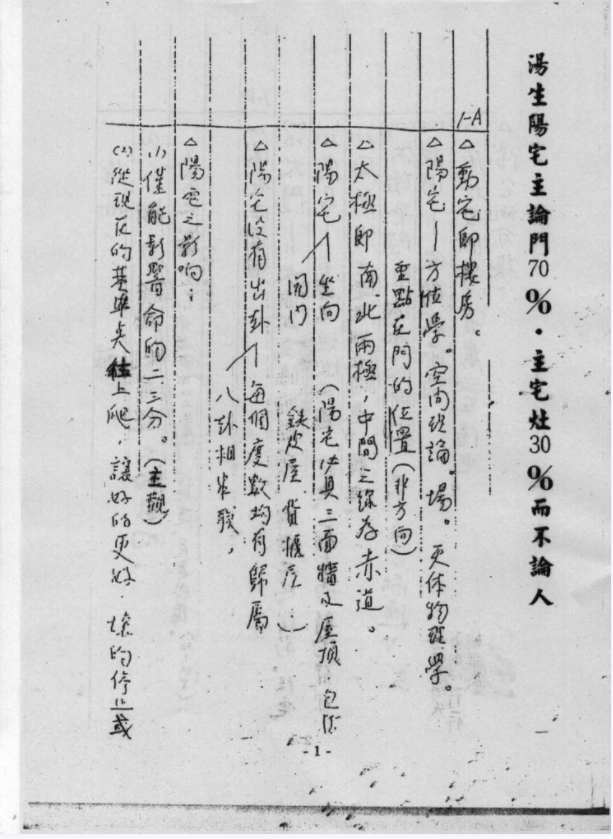 湯生陽宅主論門70%·主宅灶30%而不論人
1-A
△動宅即樓房。
△陽宅—方位學。空间理論。場。天体物理學。
重點在門的位置(非方向)
△太極即南北兩極,中間之線為赤道。
△陽宅—坐向(陽宅必具三面牆及屋頂包括
開門 鐵皮屋 貨櫃屋)
△陽宅没有出卦—每個度數均有歸屬
八卦相生
△陽宅之影响:
(1)僅能影響命的二三分。(主觀)
(2)從現在的基準点往上爬,讓好的更好,壞的停止或
-1-